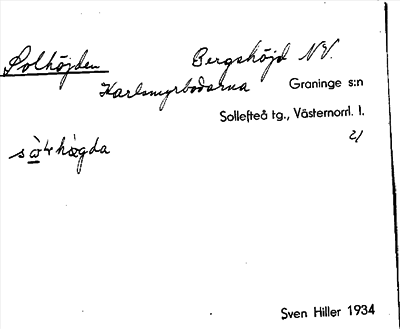 Solhöjden Bergshöjd NV.
Karlsmyrbodarna Graninge s:n
Sollefteå tg., Västernorrl. l.
2/
Sven Hiller 1934